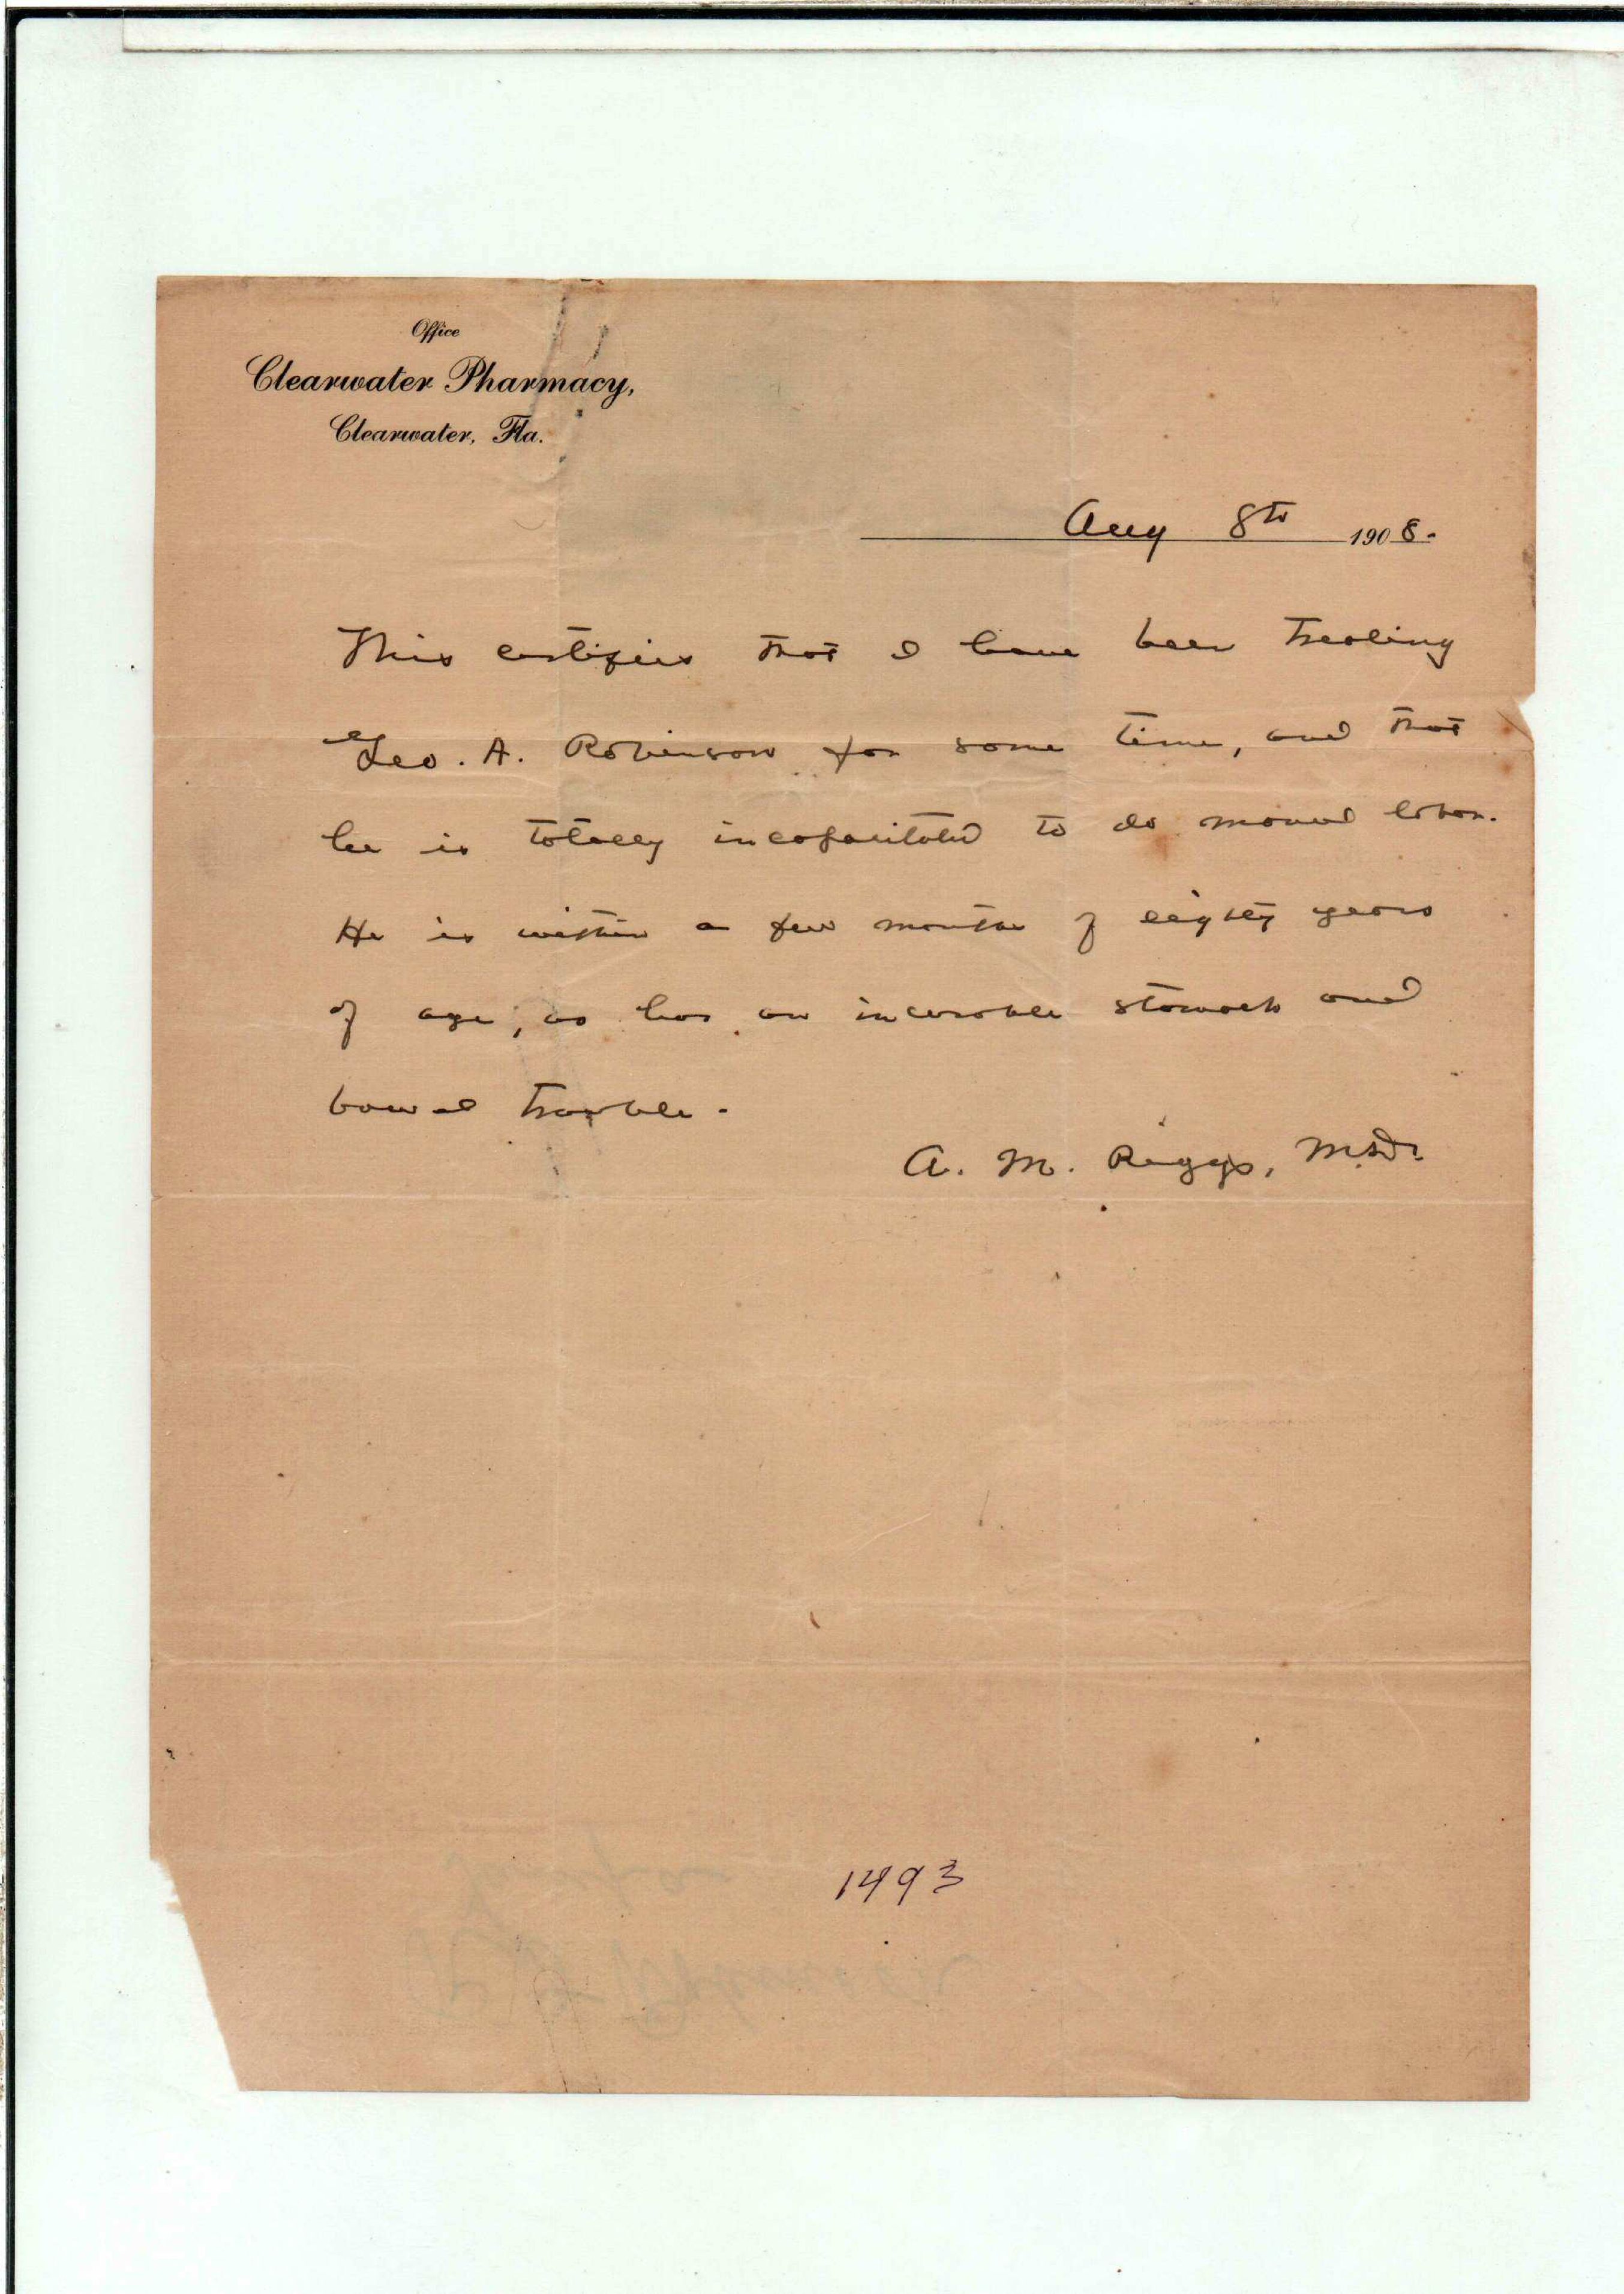 Office
Clearwater Pharmacy,
Clearwater, Fla.
Aug 8th 1908.
This certifies that I have been treating
Geo. A. Robinson for some time, and that
he is totally incapacitated to do manual labor.
He is within a few months of eighty years
of age, as has an incurable stomach and
bowel trouble.
A. M. Riggs, M.D.
1493